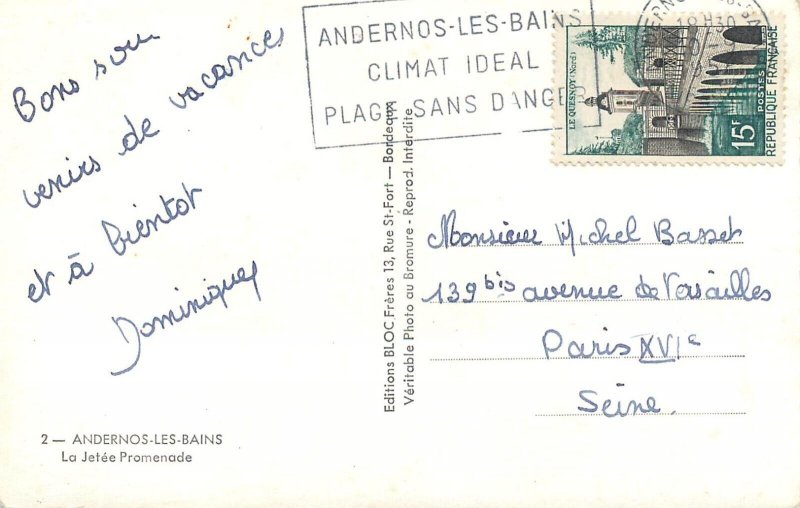 Bons sou
venirs de vacances
et à bientot
Dominique
ANDERNOS-LES-BAINS
CLIMAT IDEAL
PLAGE SANS DANGER
18H30
LE QUESNOY (Nord)
15F
POSTES
REPUBLIQUE FRANÇAISE
Editions BLOC Frères 13, Rue St-Fort — Bordeaux
Véritable Photo au Bromure - Reprod. Interdite
Monsieur Michel Basset
139 bis avenue de Versailles
Paris XVIe
Seine.
2 — ANDERNOS-LES-BAINS
La Jetée Promenade